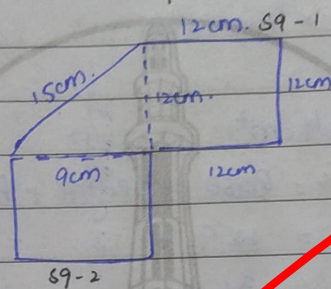 12cm. S9-1
15cm.
12cm.
12cm
9cm
12cm
S9-2